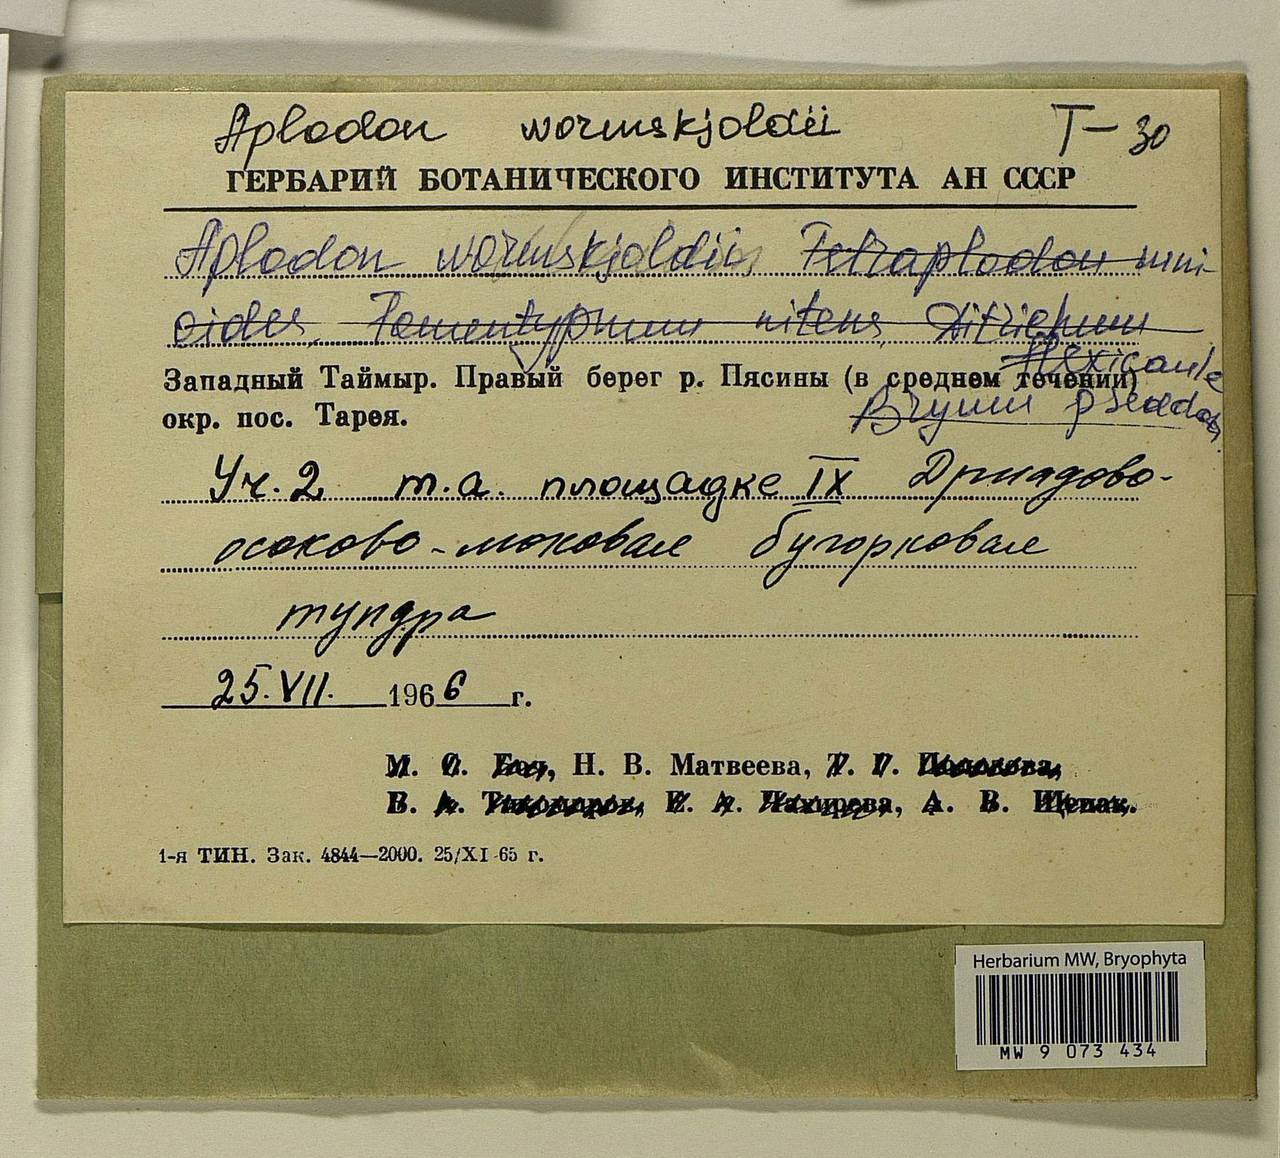 Aplodon wormskjoldii T-30
ГЕРБАРИЙ БОТАНИЧЕСКОГО ИНСТИТУТА АН СССР
Aplodon wormskjoldii, Tetraplodon mni-
oides, Tomentypnum nitens, Ditrichum
flexicaule
Западный Таймыр. Правый берег р. Пясины (в среднем течении)
Bryum pseudot
окр. пос. Тарея.
Уч. 2 т.а. площадке IX Дриадово-
осоково-моховая бугорковая
тундра
25.VII. 1966 г.
М. С. Боч, Н. В. Матвеева, Т. Г. Полозова,
В. А. Тихомиров, Е. А. Чахирева, А. В. Щепак.
1-я ТИН. Зак. 4844—2000. 25/XI-65 г.
Herbarium MW, Bryophyta
MW 9 073 434